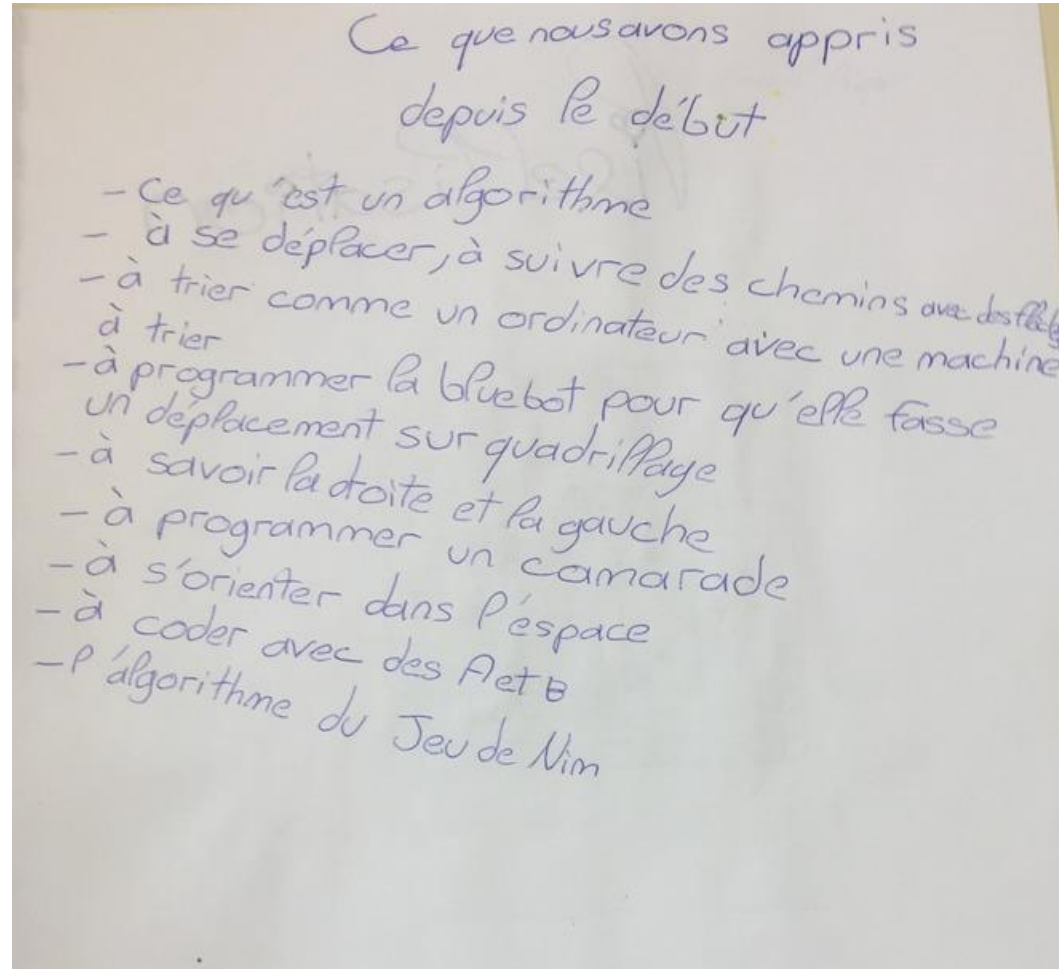 Ce que nous avons appris
depuis le début
- Ce qu'est un algorithme
- à se déplacer, à suivre des chemins avec des
- à trier comme un ordinateur avec une machine
à trier
- à programmer la bluebot pour qu'elle fasse
un déplacement sur quadrillage
- à savoir la droite et la gauche
- à programmer un camarade
- à s'orienter dans l'espace
- à coder avec des A et B
- l'algorithme du Jeu de Nim